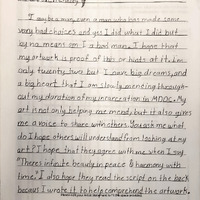 I may be a man, even a man who has made some
very bad choices and yes I did what I did but
by no means am I a bad man. I hope that
my artwork is proof of this or hints at it. I'm
only twenty two but I have big dreams, and
a big heart that I am slowly mending through-
out my duration of my incarceration in MDOC. My
art is not only helping me mend, but it also gives
me a voice to share with others. You ask me what
do I hope others will understand from looking at my
art? I hope that they agree with me when I say
"There's infinite beauty in peace & harmony with
time." I also hope they read the script on the back
because I wrote it to help comprehend the artwork.